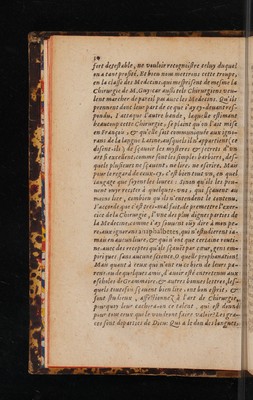 fort detestable, ne vouloir recognoistre celuy duquel
on a tant profité. Et bien nous mettrons ceste troupe,
en la classe des Medecins, qui mesprisent de mesme la
Chirurgie de M. Guy: car aussi tels Chirurgiens veu-
lent marcher de pareil pas auec les Medecins. Qu'ils
prennent dont leur part de ce que i'ay cy-deuant res-
pondu. I'attaque l'autre bande, laquelle estimant
beaucoup ceste Chirurgie, se plaint qu'on l'ait mise
en François, & qu'elle soit communiquee aux igno-
rans de la langue Latine, ausquels il n'appartient (ce
disent-ils) de sçauoir les mysteres & secrets d'vn
art si excellent, comme sont les simples barbiers, des-
quels plusieurs ne sçauent, ne lire, ne escrire. Mais
pour le regard de ceux-cy, c'est bien tout vn, en quel
langage que soyent les liures: sinon qu'ils les pren-
nent ouyr reciter à quelques-vns, qui sçauent au
moins lire, combien qu'ils n'entendent le contenu.
I'accorde que c'est tres-mal fait, de permettre l'exer-
cice de la Chirurgie, l'vne des plus dignes parties de
la Medecine, comme i'ay souuent ouy dire à mon pe-
re, aux ignorans analphabetes, qui n'estudierent ia-
mais en aucun liure, & qui n'ont que certaine routi-
ne auec des receptes qu'ils sçauent par cœur, gens em-
piriques sans aucune science. O quelle prophanation!
Mais quant à ceux qui n'ont eu ce bien de leurs pa-
rens, ou de quelques amis, d'auoir esté entretenus aux
escholes de Grammaire, & autres bonnes lettres, les-
quels toutesfois sçauent bien lire, ont bon esprit, &
sont studieux, affectionnez à l'art de Chirurgie,
pourquoy leur cachera-on ce talent, qui est donné
pour tous ceux qui le veulent faire valoir? Les gra-
ces sont departies de Dieu: Qui a le don des langues,